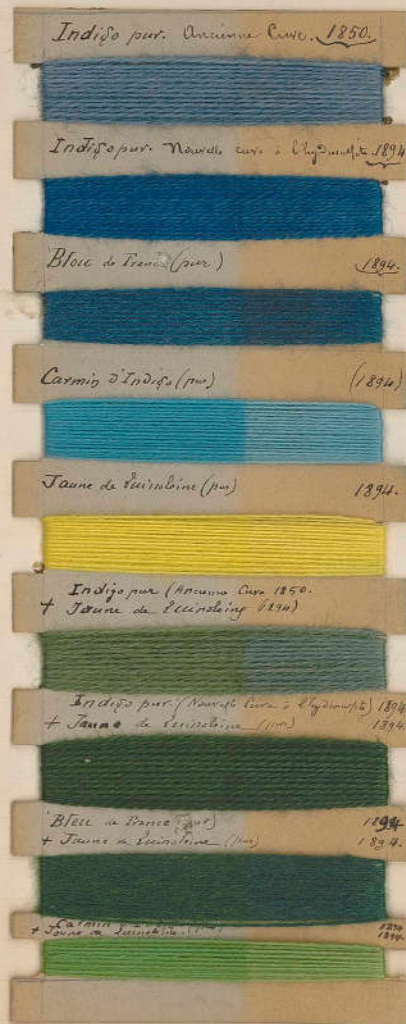 Indigo pur. Ancienne Cuve. 1850.
Indigo pur. Nouvelle cuve à l'hydrosulfite. 1894
Bleu de France (pur) 1894.
Carmin d'Indigo (pur) (1894)
Jaune de Quinoléine (pur) 1894.
Indigo pur (Ancienne Cuve 1850.
+ Jaune de Quinoléine (1894)
Indigo pur. (Nouvelle Cuve à l'hydrosulfite) 1894
+ Jaune de Quinoléine (pur) 1894.
Bleu de France (pur) 1894
+ Jaune de Quinoléine (pur) 1894.
Carmin 1894
+ Jaune de Quinoléine. (pur) 1894.